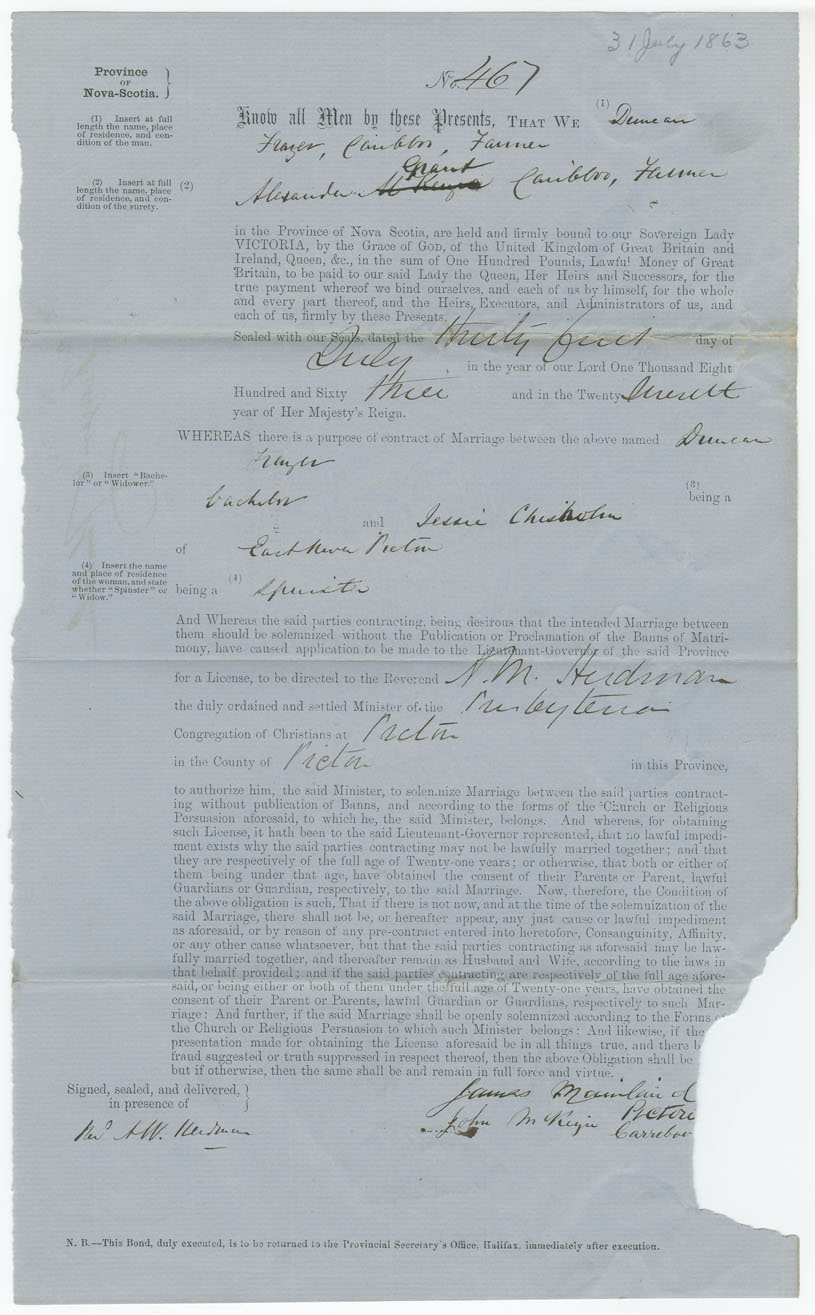 31 July 1863
Province
OF
Nova-Scotia.
No. 467
(1) Insert at full
length the name, place
of residence, and con-
dition of the man.
Know all Men by these Presents, THAT WE (1) Duncan
Frazer, Caribboo, Farmer
(2) Insert at full
length the name, place
of residence, and con-
dition of the surety.
Grant
(2) Alexander McKenzie Caribboo, Farmer
in the Province of Nova Scotia, are held and firmly bound to our Sovereign Lady
VICTORIA, by the Grace of GOD, of the United Kingdom of Great Britain and
Ireland, Queen, &c., in the sum of One Hundred Pounds, Lawful Money of Great
Britain, to be paid to our said Lady the Queen, Her Heirs and Successors, for the
true payment whereof we bind ourselves, and each of us by himself, for the whole
and every part thereof, and the Heirs, Executors, and Administrators of us, and
each of us, firmly by these Presents.
Sealed with our Seals, dated the thirty first day of
July in the year of our Lord One Thousand Eight
Hundred and Sixty three and in the Twenty
year of Her Majesty's Reign.
WHEREAS there is a purpose of contract of Marriage between the above named Duncan
Frazer
(3) Insert "Bache-
lor" or "Widower."
(3)
being a
bachelor
and Jessie Chisholm
of East River Pictou
(4) Insert the name
and place of residence
of the woman, and state
whether "Spinster" or
"Widow."
being a (4) Spinster
And Whereas the said parties contracting, being desirous that the intended Marriage between
them should be solemnized without the Publication or Proclamation of the Banns of Matri-
mony, have caused application to be made to the Lieutenant-Governor of the said Province
for a License, to be directed to the Reverend A. M. Herdman
the duly ordained and settled Minister of the Presbyterian
Congregation of Christians at Pictou
in the County of Pictou in this Province,
to authorize him, the said Minister, to solemnize Marriage between the said parties contract-
ing without publication of Banns, and according to the forms of the Church or Religious
Persuasion aforesaid, to which he, the said Minister, belongs. And whereas, for obtaining
such License, it hath been to the said Lieutenant-Governor represented, that no lawful impedi-
ment exists why the said parties contracting may not be lawfully married together; and that
they are respectively of the full age of Twenty-one years; or otherwise, that both or either of
them being under that age, have obtained the consent of their Parents or Parent, lawful
Guardians or Guardian, respectively, to the said Marriage. Now, therefore, the Condition of
the above obligation is such, That if there is not now, and at the time of the solemnization of the
said Marriage, there shall not be, or hereafter appear, any just cause or lawful impediment
as aforesaid, or by reason of any pre-contract entered into heretofore, Consanguinity, Affinity,
or any other cause whatsoever, but that the said parties contracting as aforesaid may be law-
fully married together, and thereafter remain as Husband and Wife, according to the laws in
that behalf provided; and if the said parties contracting are respectively of the full age afore-
said, or being either or both of them under the full age of Twenty-one years, have obtained the
consent of their Parent or Parents, lawful Guardian or Guardians, respectively to such Mar-
riage: And further, if the said Marriage shall be openly solemnized according to the Forms of
the Church or Religious Persuasion to which such Minister belongs: And likewise, if the
presentation made for obtaining the License aforesaid be in all things true, and there b
fraud suggested or truth suppressed in respect thereof, then the above Obligation shall be
but if otherwise, then the same shall be and remain in full force and virtue.
Signed, sealed, and delivered,
in presence of
James Mainland
Pictou
Revd A. W. Herdman
John McKenzie
Carreboo
N. B.—This Bond, duly executed, is to be returned to the Provincial Secretary's Office, Halifax, immediately after execution.